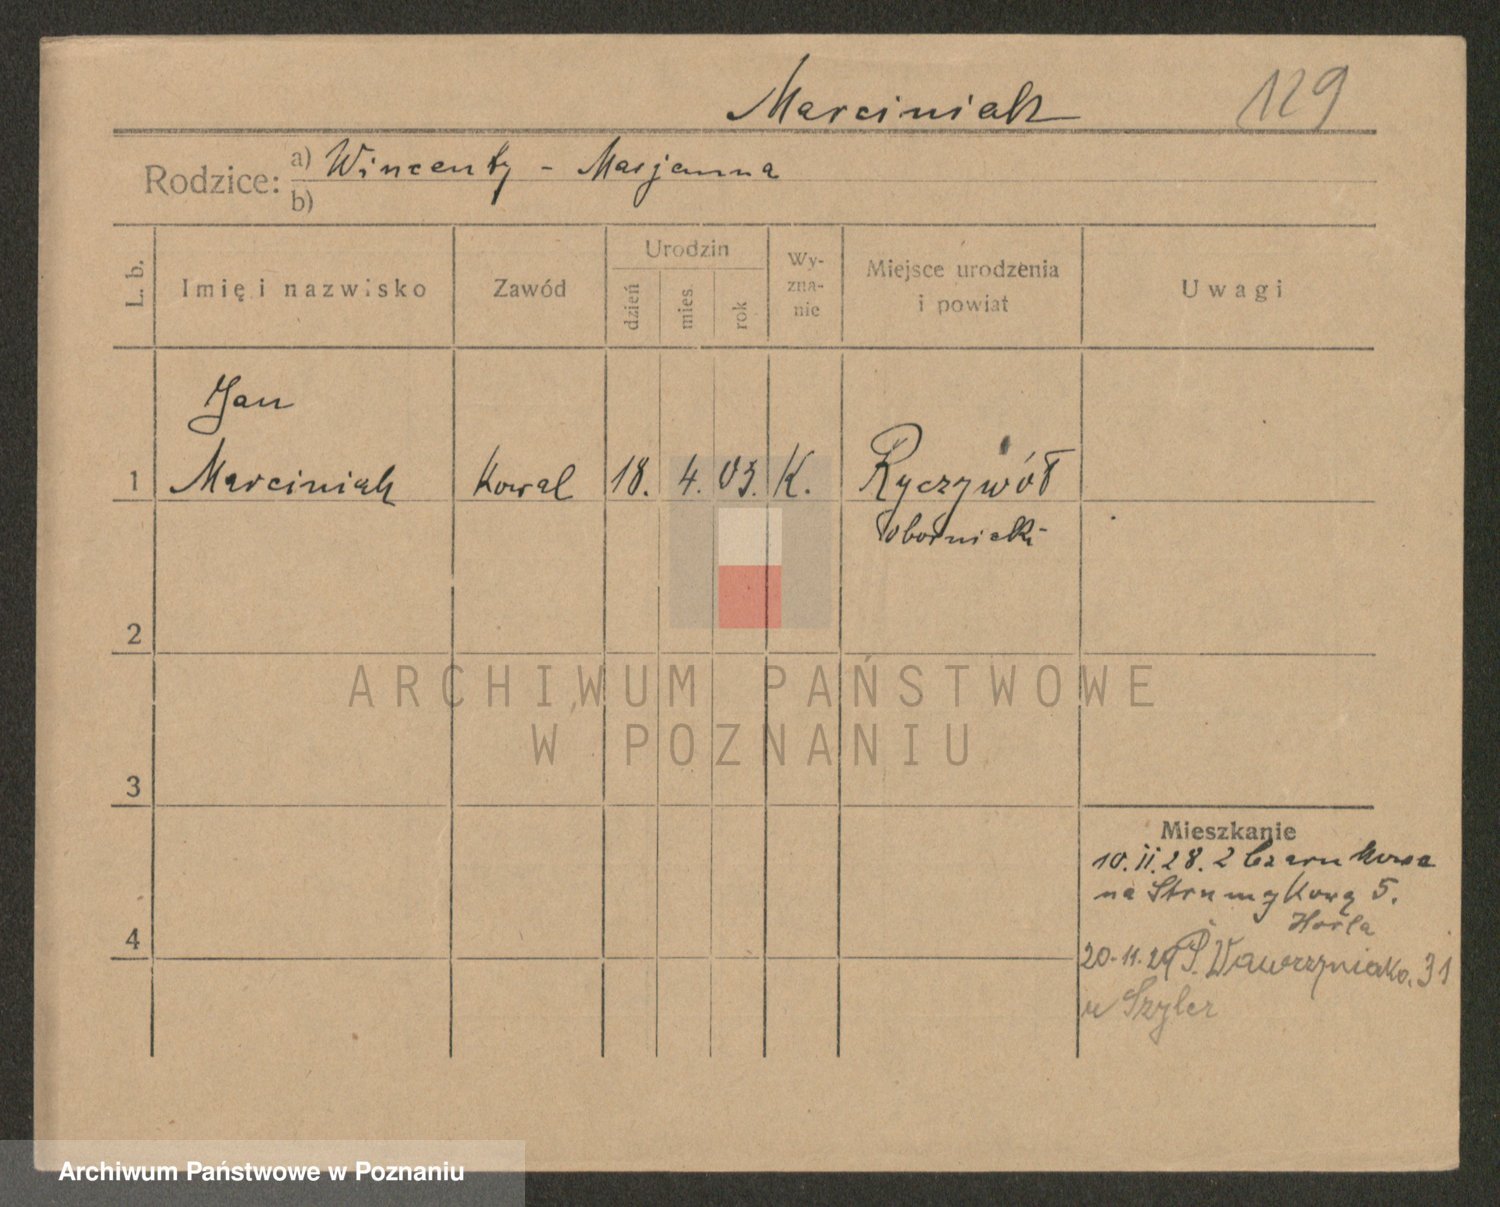 Marciniak 129
Rodzice: a) Wincenty - Marjanna
b)
L. b.
Imię i nazwisko
Zawód
Urodzin
dzień
mies.
rok
Wy-
zna-
nie
Miejsce urodzenia
i powiat
Uwagi
Jan
1 Marciniak Kowal 18. 4. 03. K. Ryczywół
obornicki
2
3
4
Mieszkanie
10.ii.28. z Czarnkowa
na Strumykową 5.
20.11.29 P. Wawrzyniaka. 31
u Szyler
ARCHIWUM PAŃSTWOWE
W POZNANIU
Archiwum Państwowe w Poznaniu